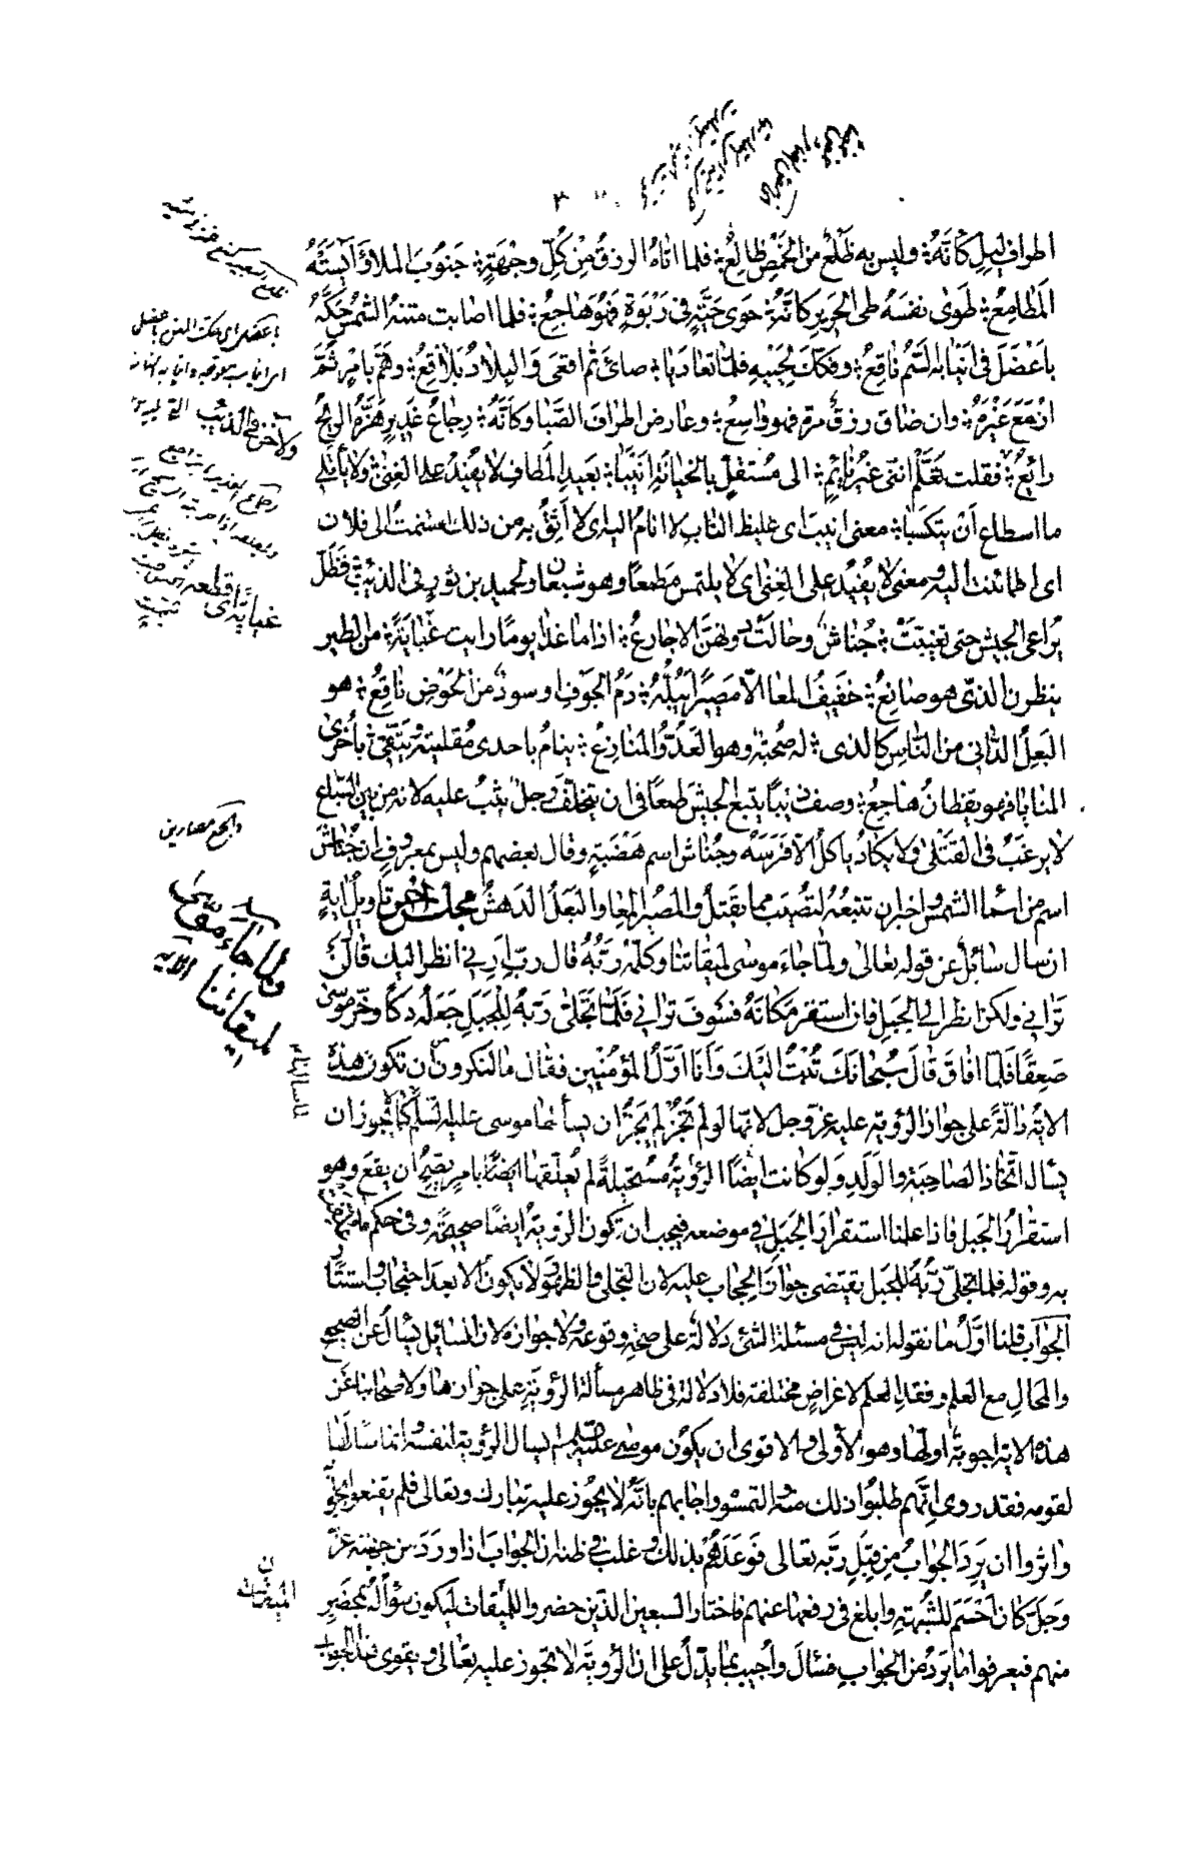 اطراف ليل كانه ؞ وليس به ظلع من الخمص ظالع ؞ فلما اتاه الرزق من كل وجهة ؞ جنوب الملا وآيسته
المطامع ؞ طوى نفسه طي الحرير كانه ؞ حوى حيّة في ربوة فهو هاجع ؞ فلما اصابت متنه الشمس حكّه
باعضل في انيابه السّم ناقع ؞ وفكّك لحييه فلما تعاديا ؞ صائ ثم اقعى والبلاد بلاقع ؞ وهمّ بامر ثم
ازمع غيره ؞ وان ضاق رزق مرة فهو واسع ؞ وعارض اطراف الصّبا وكانه ؞ رجاع غدير هزّه الريح
رائع ؞ فقلت تعلّم انني غير نائم ؞ الى مستقلّ بالخيانة انيبا ؞ بعيد المطاف لا يفيد على الغنى ؞ ولا يأتلي
ما اسطاع أن يتكسّبا ؞ معنى انيب اى غليظ الناب لا انام اليه اى لا أثق به من ذلك استنمت الى فلان
اى اطمانت اليه ومعنى لا يفيد على الغنى اى لا يلتمس مطعما وهو شبعان ولحميد بن ثور في الذئب ؞ فظلّ
يراعى الجيش حتى تغيبت ؞ خناش وحالت دونهن الاجارع ؞ اذا ما غدا يوما رايت غيابة ؞ من الطير
ينظرن الذي هو صانع ؞ خفيف المعا الاّ مصيرا يبلّه ؞ دم الجوف او سور من الحوض ناقع ؞ هو
البعل الدّاني من الناس كالذى ؞ له صحبة وهو العدوّ المنازع ؞ ينام باحدى مقلتيه ويتّقي ؞ باخرى
المنايا فهو يقظان هاجع ؞ وصف ذئبا يتبع الجيش طمعا في ان يتخلف رجل يثب عليه لانه من بين السّباع
لا يرغب في القتلى ولا يكاد ياكل الا فرسه وخناش اسم هضبة وقال بعضهم وليس بمعروف ان خناش
اسم من اسماء الشمس واخبر ان تتبعه لتصيب مما يقتل والمصير المعا والبعل الدهش مجلس آخر تأويل آية
ان سال سائل عن قوله تعالى ولمّا جاء موسى لميقاتنا وكلّمه ربّه قال ربّ ارني انظر اليك قال لن
تراني ولكن انظر الى الجبل فان استقر مكانه فسوف تراني فلمّا تجلّى ربّه للجبل جعله دكّا وخرّ موسى
صعقا فلمّا افاق قال سبحانك تبت اليك وأنا اوّل المؤمنين فقال ما تنكرون ان تكون هذه
الاية دالّة على جواز الرؤية عليه عزّ وجل لانها لو لم تجز لم يجز ان يسألها موسى عليه السّلم كما لا يجوز ان
يسال اتّخاذ الصاحبة والولد ولو كانت ايضا الرؤية مستحيلة لم يعلّقها ايضا بامر يصحّ ان يقع وهو
استقرار الجبل فاذا علمنا استقرار الجبل في موضعه فيجب ان تكون الرؤية ايضا صحيحة وفي حكم ما علّقت
به وقوله فلما تجلّى ربّه للجبل يقتضى جواز الحجاب عليه لان التجلى والظهور لا يكون الا بعد احتجاب واستتار
الجواب قلنا اوّل ما نقوله انه ليس في مسئلة الشئ دلالة على صحّته وقوعه ولا جوازه لان السايل يسال عن الصحيح
والمحال مع العلم وفقد العلم لاغراض مختلفة فلا دلالة في ظاهر مسألة الرؤية على جوازها ولاصحابنا عن
هذه الاية اجوبة اولها وهو الأولى والاقوى ان يكون موسى عليه السلم لم يسال الرؤية لنفسه وانما سألها
لقومه فقد روى انّهم طلبوا ذلك منه والتمسوه فاجابهم بانّه لا يجوز عليه تبارك وتعالى فلم يقنعوا بجوابه
واثروا ان يرد الجواب من قبل ربّه تعالى فوعدهم بذلك وغلب في ظنه ان الجواب اذا ورد من جهته عزّ
وجلّ كان احسم للشبهة وابلغ في رفعها عنهم فاختار السبعين الذين حضروا للميقات ليكون سؤاله بمحضر
منهم فيعرفوا ما يرد من الجواب فسال واجيب بما يدلّ على ان الرؤية لا تجوز عليه تعالى ويقوى هذا الجواب
غيابة اى قطعة
والجمع مصارين
ولما جاء موسى
لميقاتنا الآية